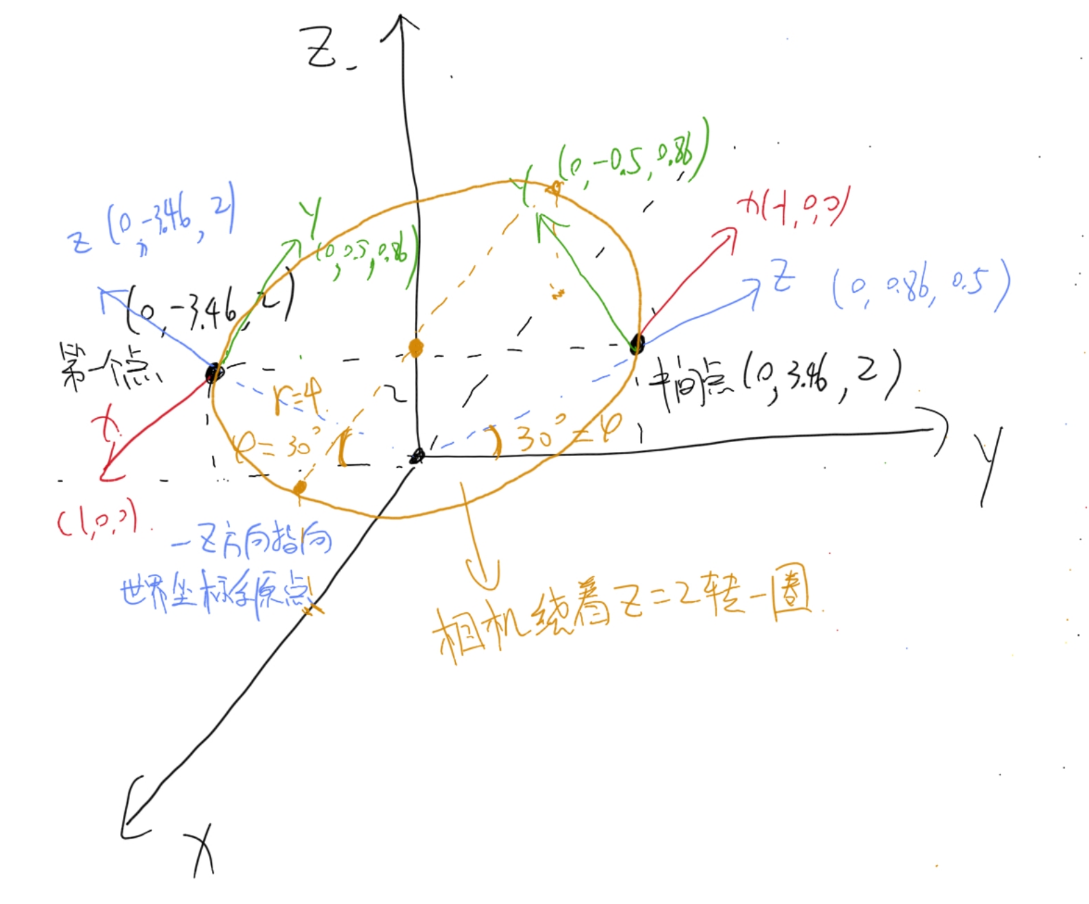 Z
(0,-0.5,0.86)
y
x(-1,0,0)
z (0,-3.46,2)
y
(0,0.5,0.86)
z (0,0.86,0.5)
(0,-3.46,2)
第一个点
中间点(0,3.46,2)
r=4
2
x
φ=30°
30°=φ
Y
(1,0,0)
-Z方向指向
世界坐标系原点
相机绕着Z=2转一圈
X